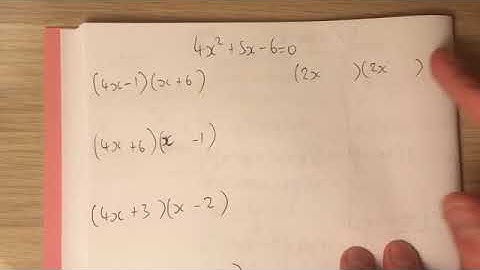 4x² + 5x - 6 = 0
(4x - 1)(x + 6) (2x )(2x )
(4x + 6)(x - 1)
(4x + 3)(x - 2)